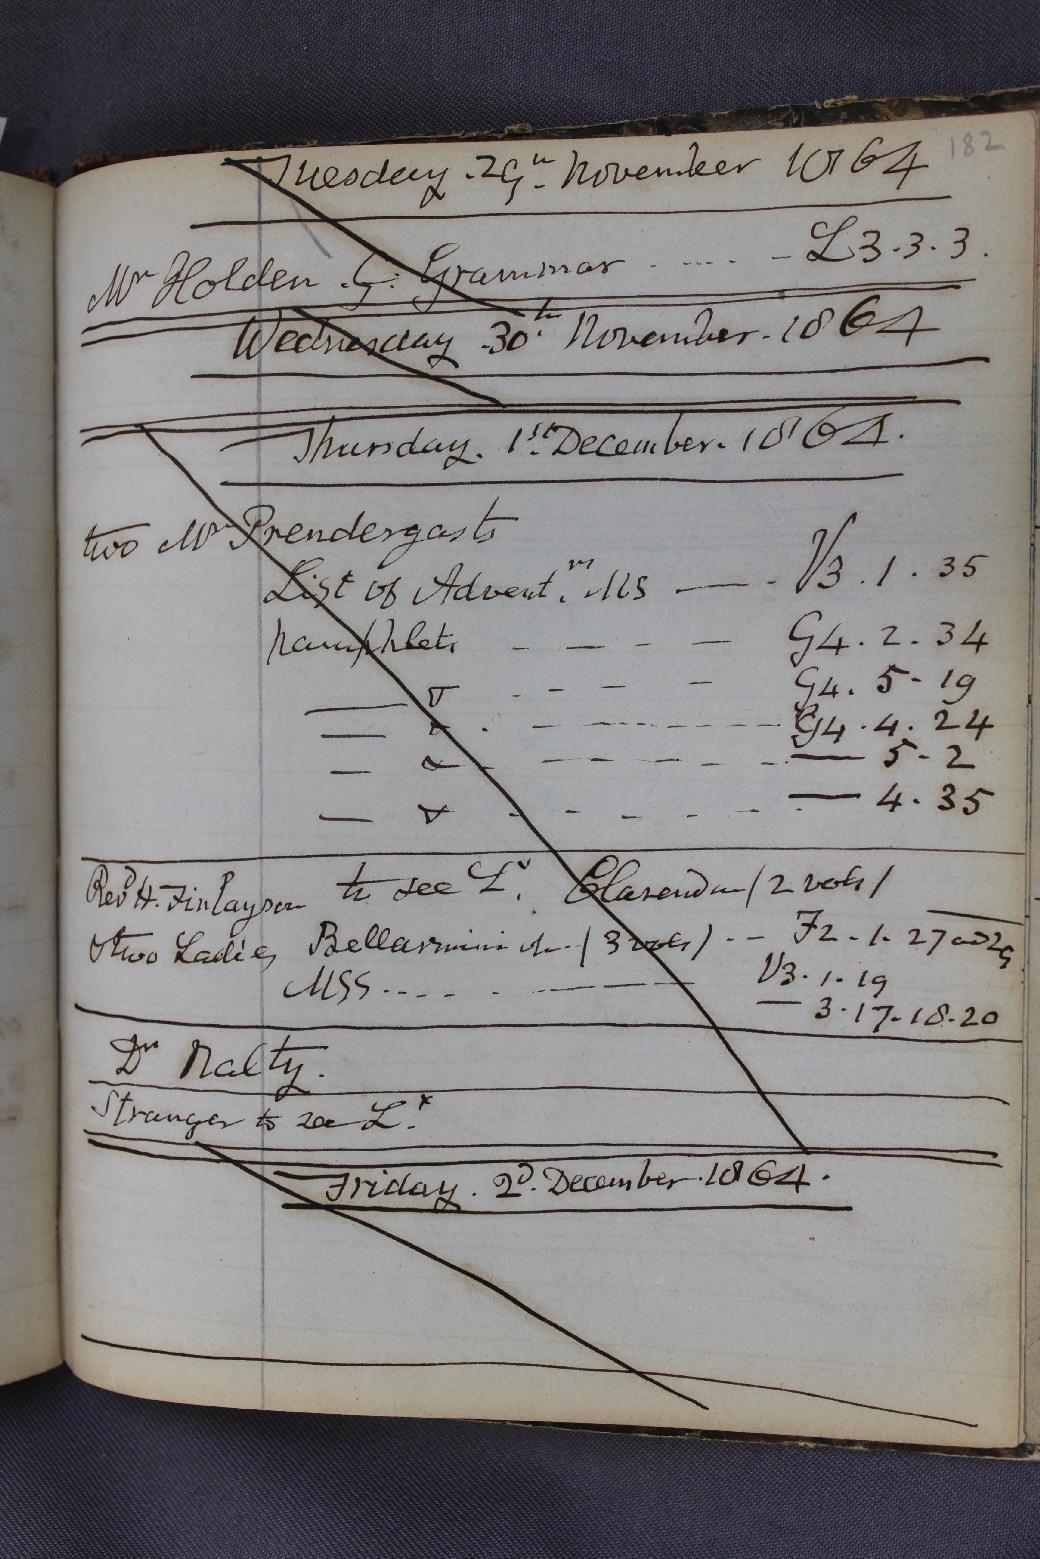 182
Tuesday 29th November 1864
Mr Holden G. Grammar L3.3.3.
Wednesday 30th November 1864
Thursday. 1st December. 1864.
two Mr Prendergasts
List of Advent.rs MS V3.1.35
pamphlets G4.2.34
G4.5-19
G4.4.24
5-2
4.35
Revd H. Finlayson to see Ly. Clarendon (2 vols)
& two Ladies Bellarmini (3 vols) F2.1.27 and 29
MSS V3.1.19
3.17.18.20
Dr Nalty.
Stranger to see Ly.
Friday. 2d. December. 1864.